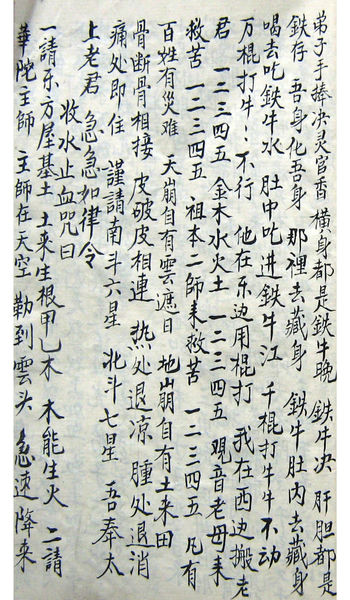 弟子手捧决灵官香 横身都是鉄牛晚 鉄牛决 肝胆都是
鉄存 吾身化吾身 那裡去藏身 鉄牛肚内去藏身
喝去吃鉄牛水 肚中吃进鉄牛江 千棍打牛牛不动
万棍打牛⋯不行 他在东边用棍打 我在西边搬老
君 一二三四五 金木水火土 一二三四五 观音老母来
救苦 一二三四五 祖本二師来救苦 一二三四五 凡有
百姓有災难 天崩自有雲遮日 地崩自有土来田
骨断骨相接 皮破皮相連 热处退凉 腫处退消
痛处即住 謹請南斗六星 北斗七星 吾奉太
上老君 急急如律令
收水止血咒曰
一請东方屋基土 土来生根甲乙木 木能生火 二請
華陀主師 主師在天空 勒到雲头 急速降来